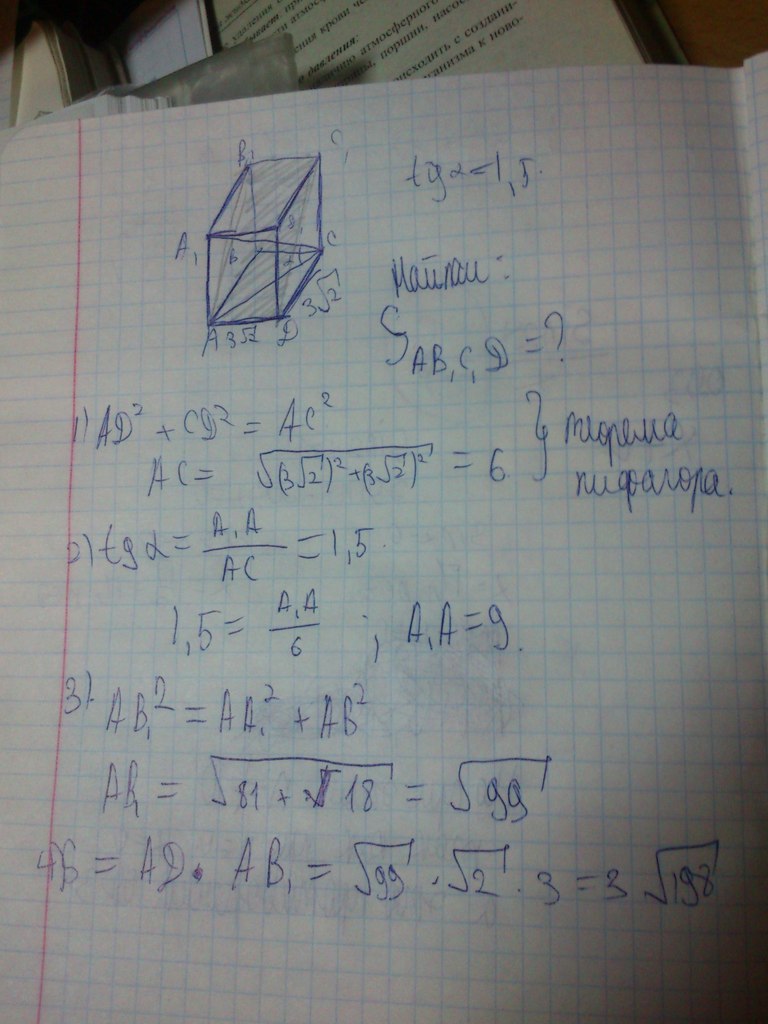 удаления
атмосферного
щения крови че
о давления:
атмосферного
поршни, насос
исходить с создани-
организма к ново-
B₁ C₁
A₁ C
A 3√2 D 3√2
tg α = 1,5.
Найти:
S AB₁C₁D = ?
1) AD² + CD² = AC²
AC = √(3√2)² + (3√2)² = 6 } теорема пифагора.
2) tg α = A₁A / AC = 1,5.
1,5 = A₁A / 6 ; A₁A = 9.
3). AB₁² = AA₁² + AB²
AB₁ = √81 + 18 = √99
4) S = AD · AB₁ = √99 · √2 · 3 = 3 √198